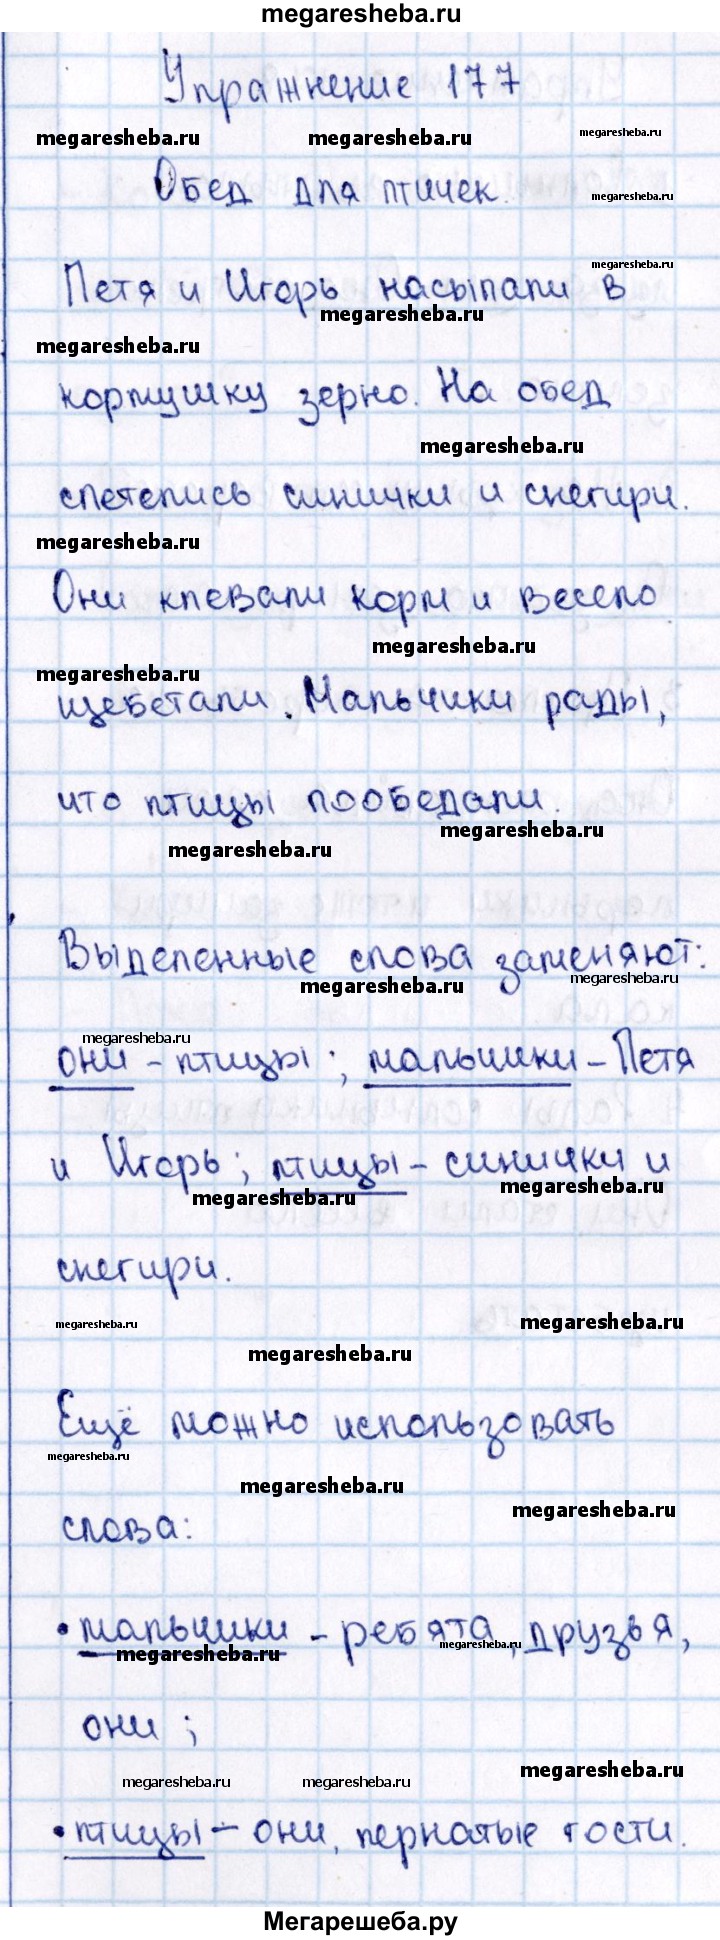 megaresheba.ru
Упражнение 177
megaresheba.ru megaresheba.ru megaresheba.ru
Обед для птичек.
megaresheba.ru
megaresheba.ru
Петя и Игорь насыпали в
megaresheba.ru
megaresheba.ru
кормушку зерно. На обед
megaresheba.ru
слетелись синички и снегири.
megaresheba.ru
Они клевали корм и весело
megaresheba.ru
megaresheba.ru
щебетали. Мальчики рады,
что птицы пообедали.
megaresheba.ru
megaresheba.ru
Выделенные слова заменяют:
megaresheba.ru megaresheba.ru
megaresheba.ru
они – птицы; мальчики – Петя
и Игорь; птицы – синички и
megaresheba.ru megaresheba.ru
снегири.
megaresheba.ru megaresheba.ru
megaresheba.ru
Ещё можно использовать
megaresheba.ru
megaresheba.ru
megaresheba.ru
слова:
• мальчики – ребята, друзья,
megaresheba.ru megaresheba.ru
они;
megaresheba.ru
megaresheba.ru megaresheba.ru
• птицы – они, пернатые гости.
Мегарешеба.ру